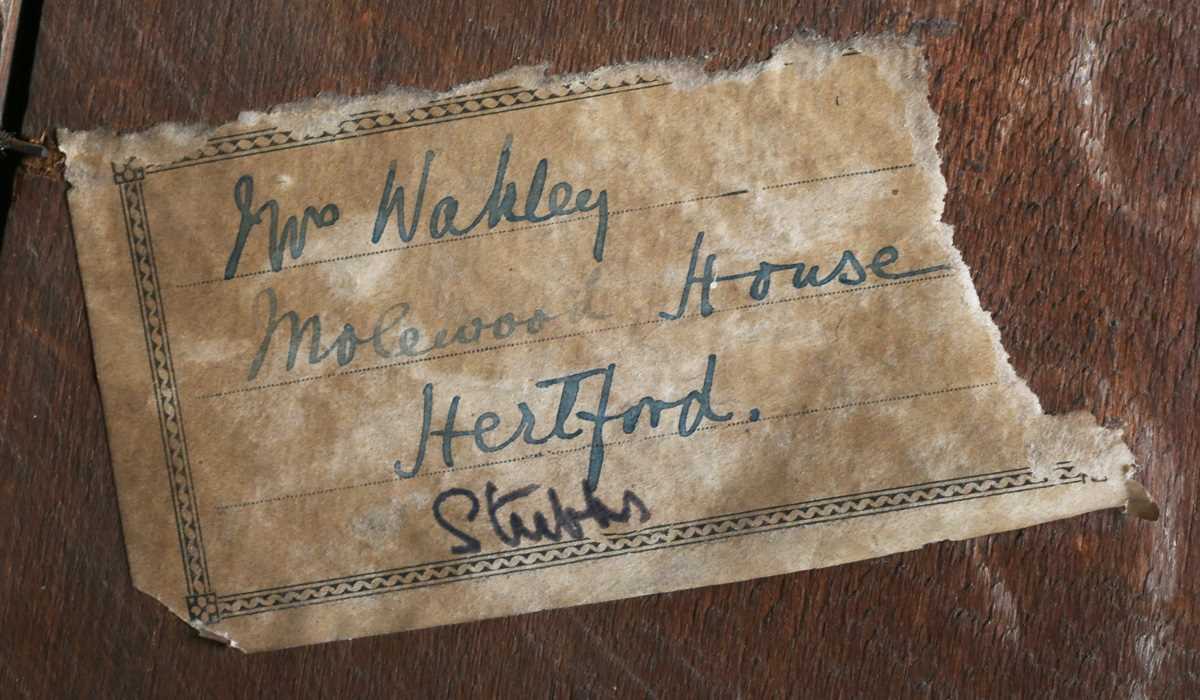 Mrs Wakley
Molewood House
Hertford.
Stubbs